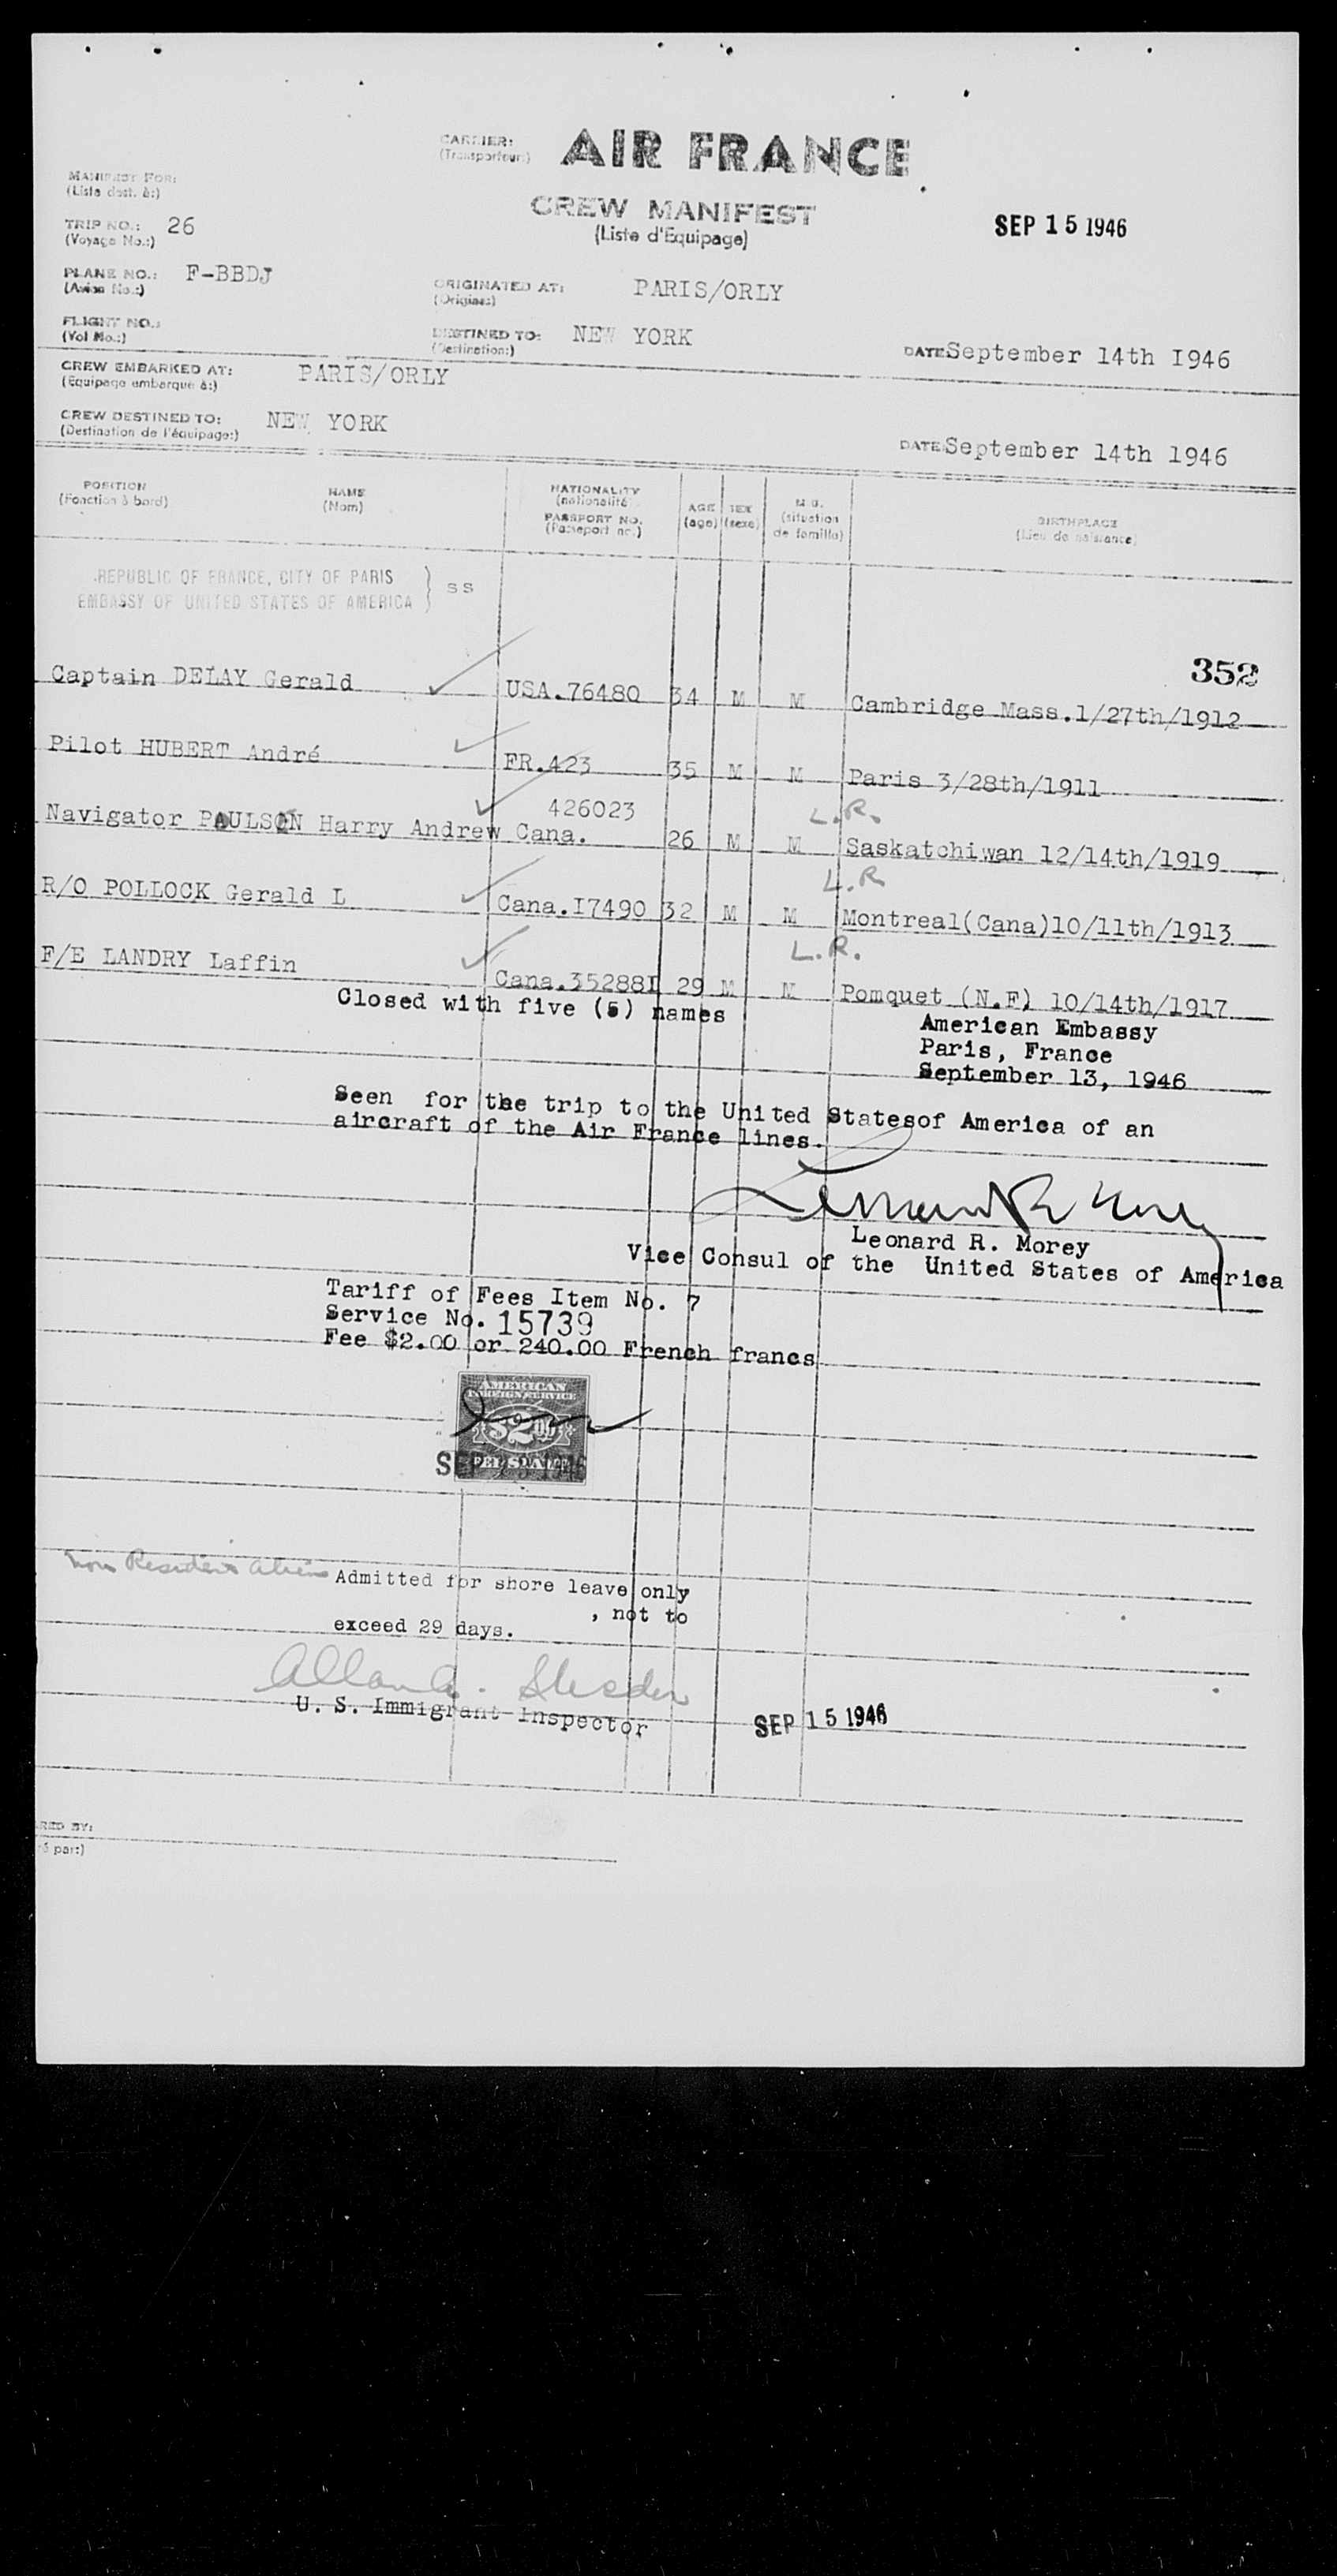 CARRIER: AIR FRANCE
(Transporteur:)
MANIFEST FOR:
(Liste dest. à:)
CREW MANIFEST
(Liste d'Equipage)
SEP 15 1946
TRIP NO.: 26
(Voyage No.:)
PLANE NO.: F-BBDJ
(Avion No.:)
ORIGINATED AT: PARIS/ORLY
(Origine:)
FLIGHT NO.:
(Vol No.:)
DESTINED TO: NEW YORK
(Destination:)
DATE September 14th I946
CREW EMBARKED AT: PARIS/ORLY
(Equipage embarqué à:)
CREW DESTINED TO: NEW YORK
(Destination de l'équipage:)
DATE September 14th 1946
POSITION
(Fonction à bord)
NAME
(Nom)
NATIONALITY
(nationalité)
PASSPORT NO.
(Passeport no.)
AGE
(age)
SEX
(sexe)
(situation
de famille)
BIRTHPLACE
(Lieu de naissance)
REPUBLIC OF FRANCE, CITY OF PARIS
EMBASSY OF UNITED STATES OF AMERICA } SS
352
Captain DELAY Gerald USA.76480 34 M M Cambridge Mass.1/27th/1912
Pilot HUBERT André FR.423 35 M M Paris 3/28th/1911
426023 L.R.
Navigator PAULSON Harry Andrew Cana. 26 M M Saskatchiwan 12/14th/1919
L.R
R/O POLLOCK Gerald L Cana.I7490 32 M M Montreal(Cana)10/11th/1913
L.R.
F/E LANDRY Laffin Cana.35288I 29 M M Pomquet (N.F) 10/14th/1917
Closed with five (5) names
American Embassy
Paris, France
September 13, 1946
Seen for the trip to the United Statesof America of an
aircraft of the Air France lines.
Leonard R. Morey
Vice Consul of the United States of America
Tariff of Fees Item No. 7
Service No. 15739
Fee $2.00 or 240.00 French francs
AMERICAN
FOREIGN SERVICE
$2.00
FEE STAMP
Non Resident aliens Admitted for shore leave only
, not to
exceed 29 days.
U. S. Immigrant Inspector
SEP 15 1946
RED BY:
é par:)